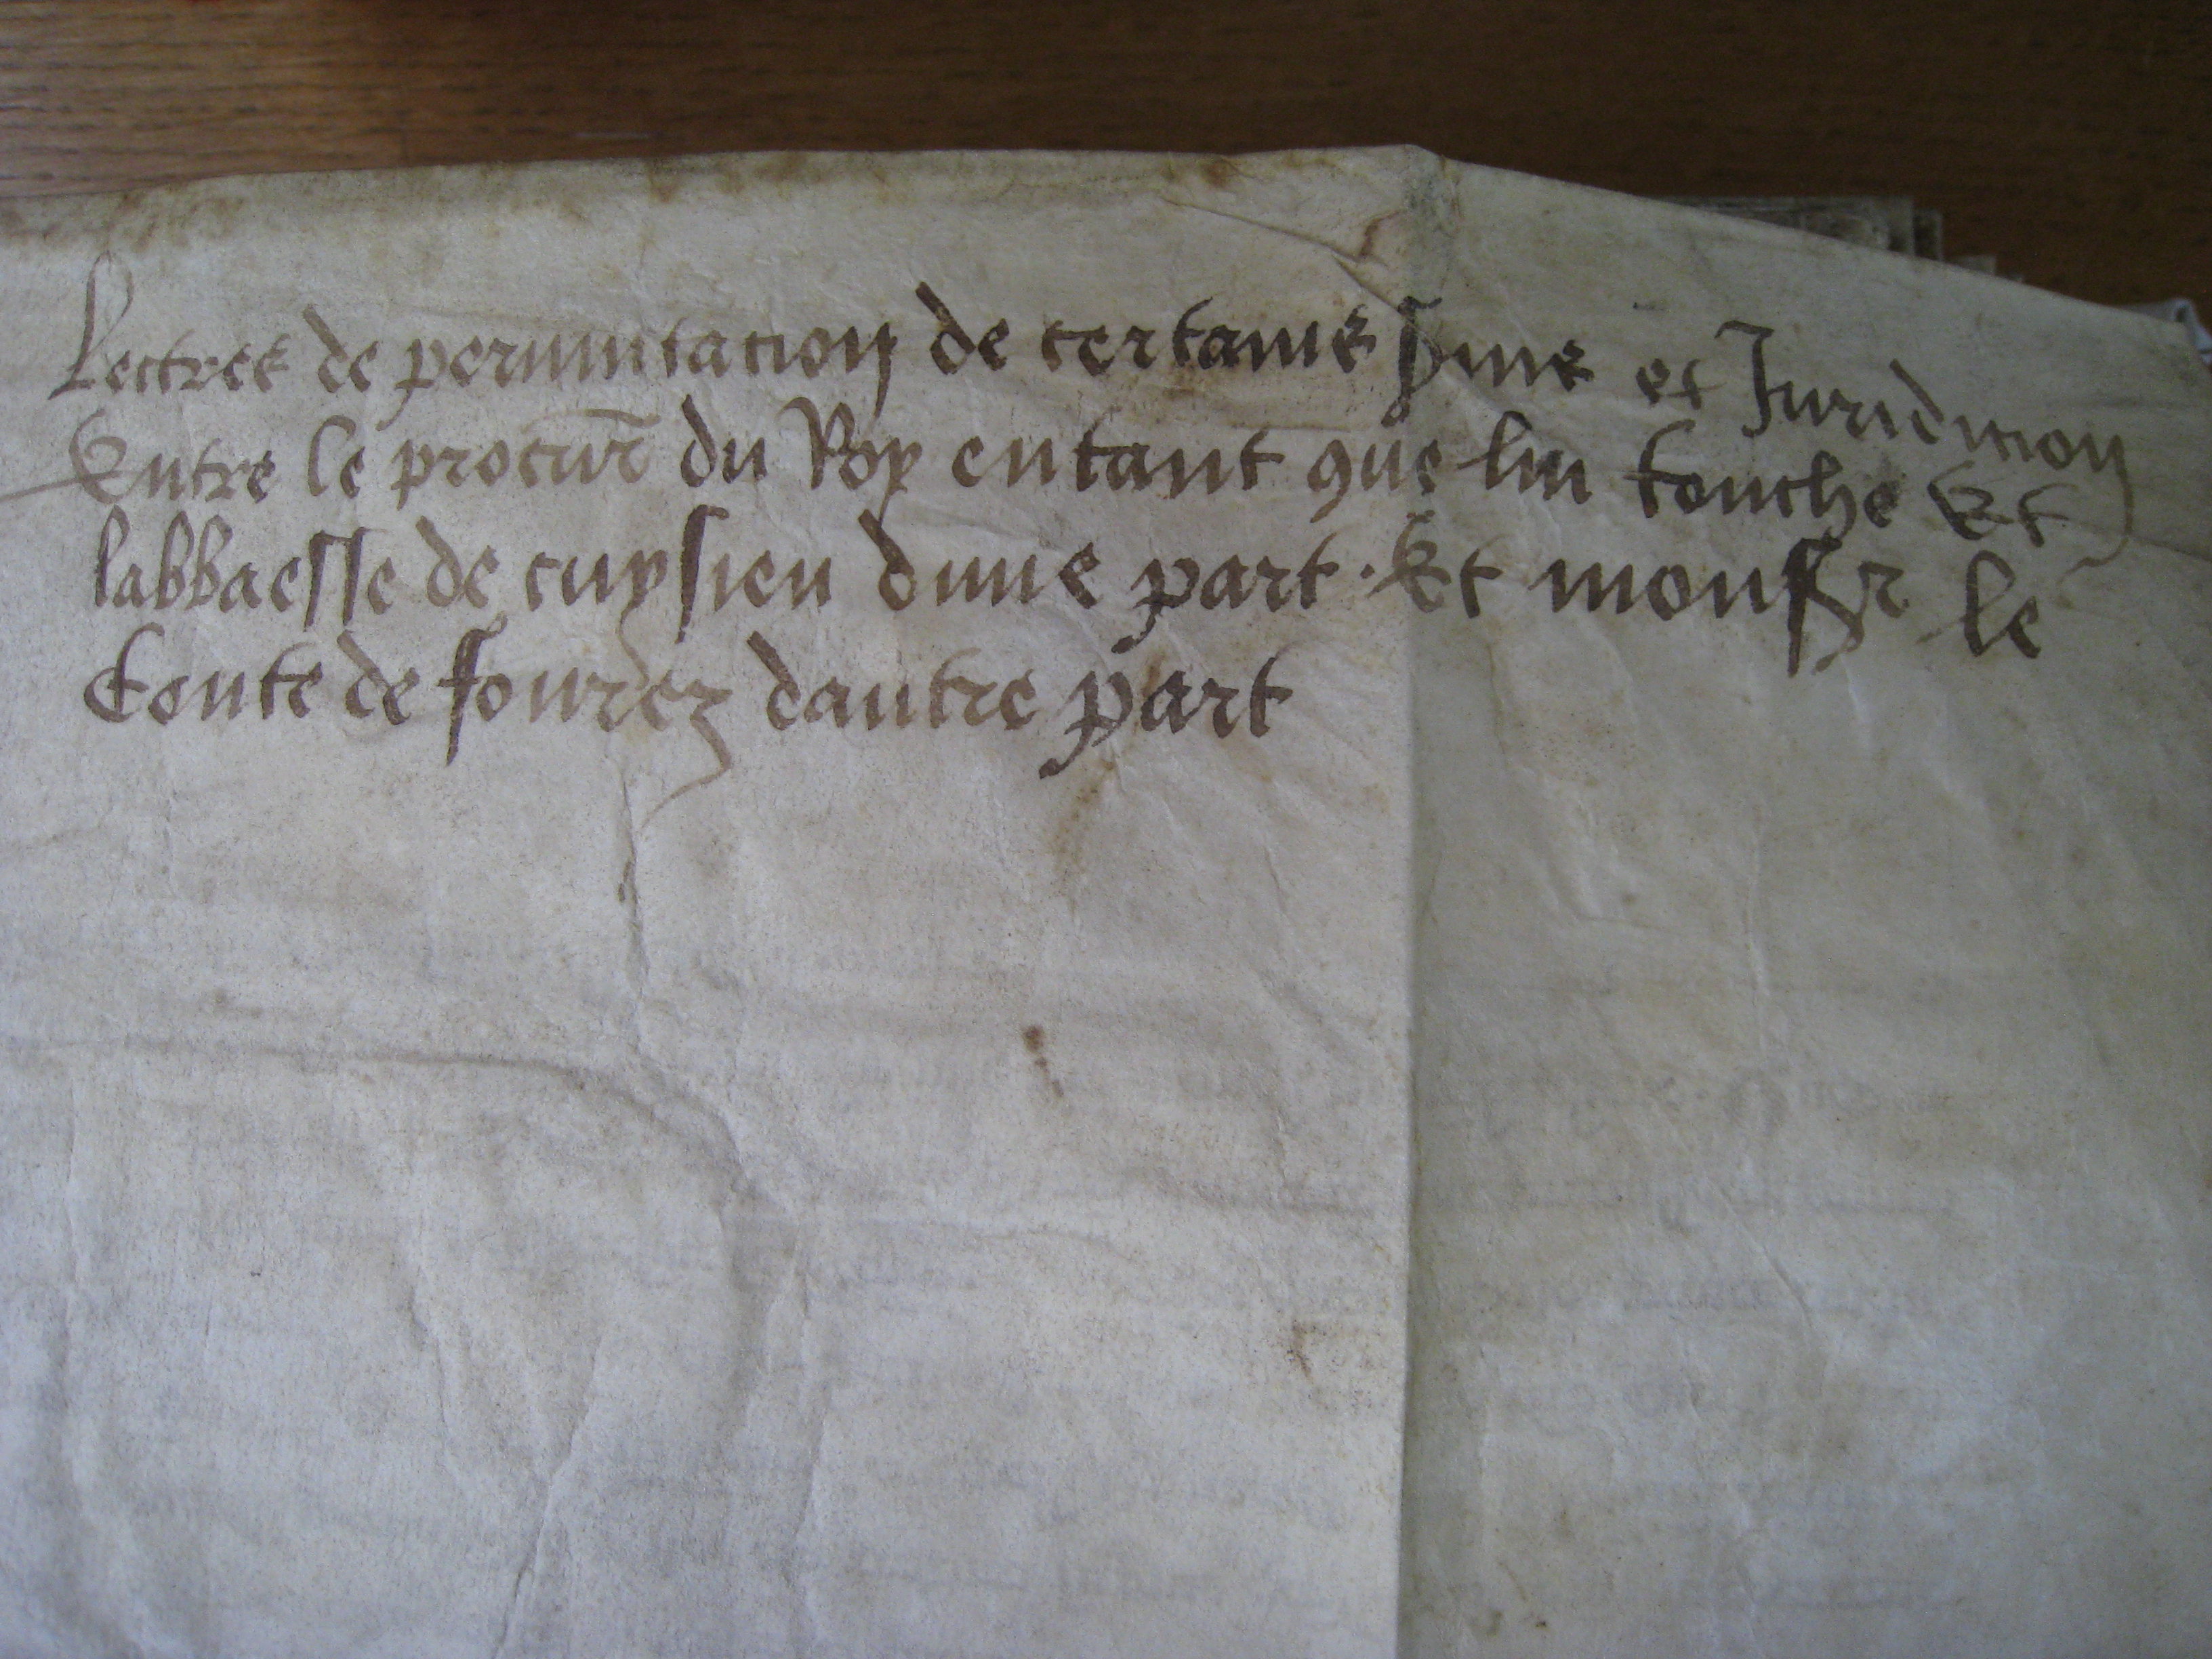 Lectres de permutacion de certaine et Juridicion
Entre le procur du Roy entant que luy touche Et
labbaesse de cuysieu dune part. Et monsr le
Conte de fourez dautre part